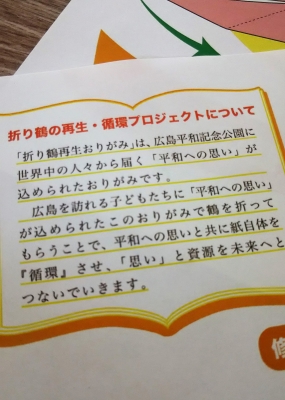 折り鶴の再生・循環プロジェクトについて
「折り鶴再生おりがみ」は、広島平和記念公園に
世界中の人々から届く「平和への思い」が
込められたおりがみです。
広島を訪れる子どもたちに「平和への思い」
が込められたこのおりがみで鶴を折って
もらうことで、平和への思いと共に紙自体を
『循環』させ、「思い」と資源を未来へと
つないでいきます。